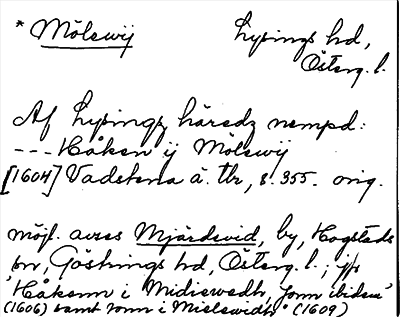 * Mölewij Lysings hd,
Österg. l.
Af Lysingz häredz nempd:
--- Håken ij Mölewij
[1604] Vadstena ä. tbr, s. 355. orig.
möjl. avses Mjärdevid, by, Hogstads
sn, Göstrings hd, Österg. l.; jfr
"Håkonn i Midiewedh, somn ibidem"
(1606) samt sonn i Mielewidh" (1609)